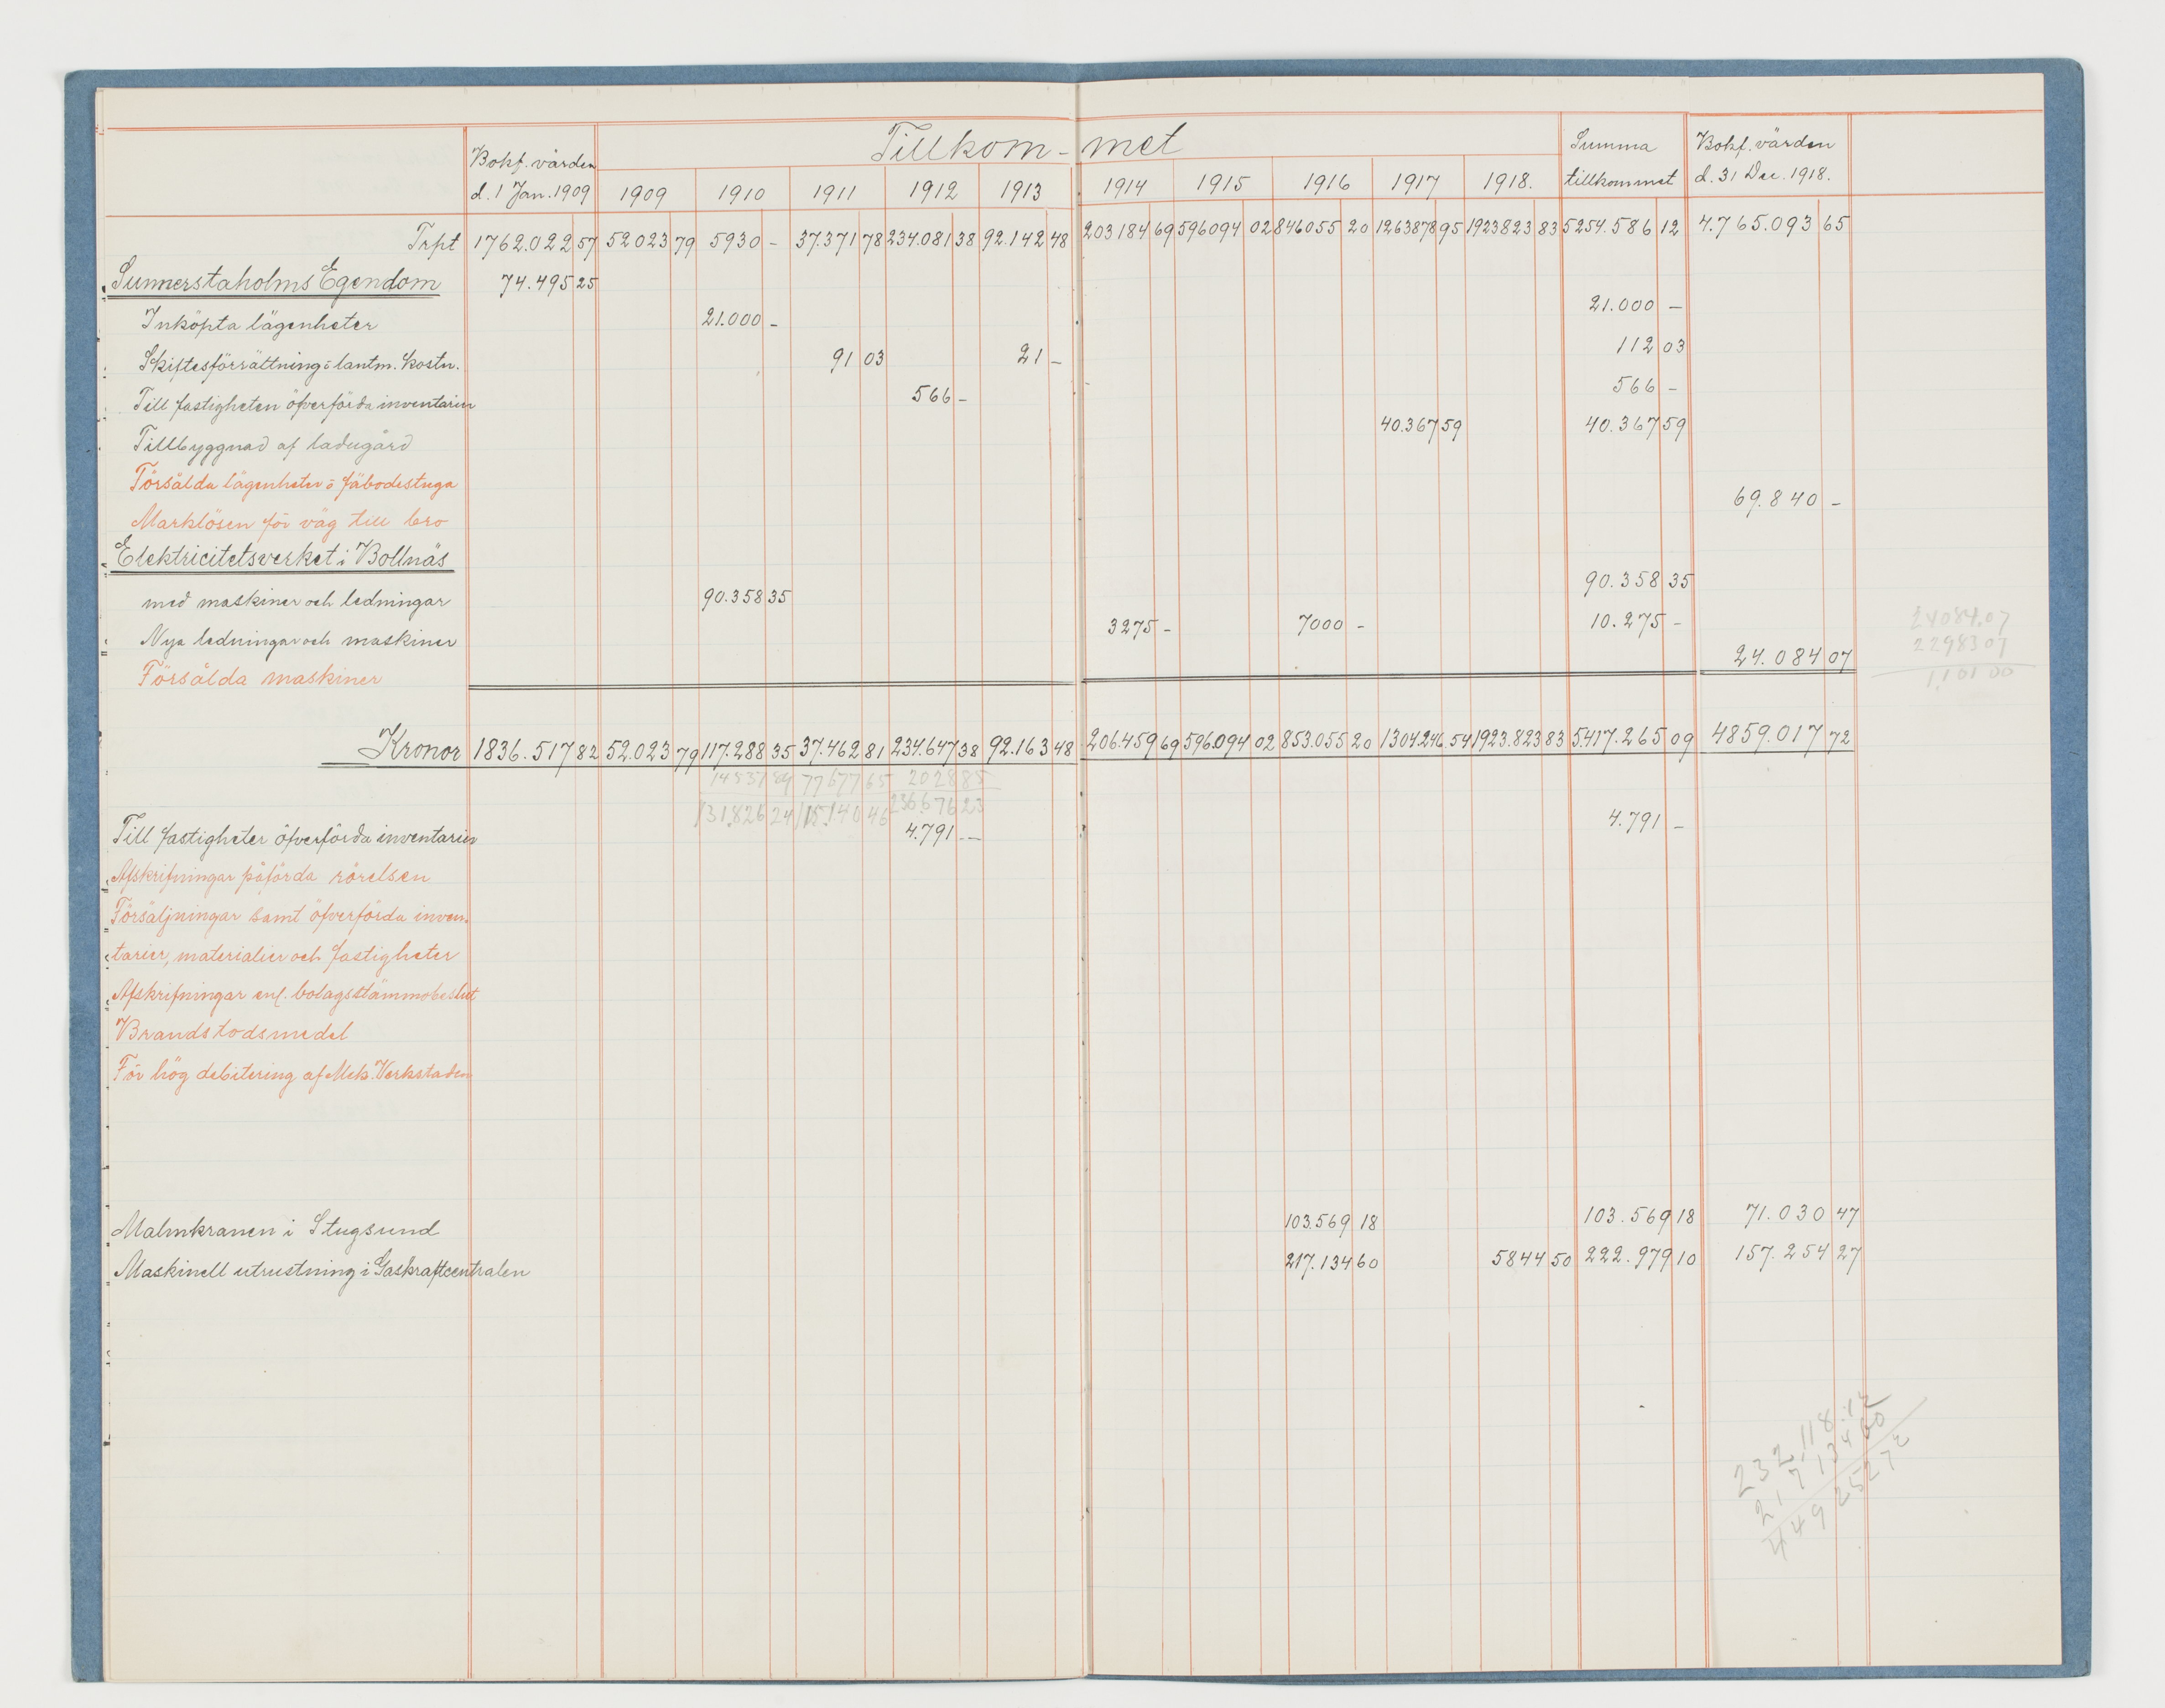 Tillkom-met
Bokf. värden d. 1 Jan. 1909 1909 1910 1911 1912 1913 1914 1915 1916 1917 1918. Summa tillkommet Bokf. värden d. 31 Dec. 1918.
Trpt 1762.022 57 52023 79 5930 - 37.371 78 234.081 38 92.142 48 203184 69 596094 02 846055 20 1263878 95 1923823 83 5254.586 12 4.765.093 65
Sunnerstaholms Egendom 74.495 25
Inköpta lägenheter 21.000 - 21.000 -
Skiftesförrättning o lantm. kostn. 91 03 21 - 112 03
Till fastigheten öfverförda inventarier 566 - 566 -
Tillbyggnad af ladugård 40.367 59 40.367 59
Försålda lägenheter o fäbodestuga
Marklösen för väg till bro 69.840 -
Elektricitetsverket i Bollnäs
med maskiner och ledningar 90.358 35 90.358 35
Nya ledningar och maskiner 3275 - 7000 - 10.275 -
Försålda maskiner 24.084 07
24084.07
22983 07
1.101 00
Kronor 1836.517 82 52.023 79 117.288 35 37.462 81 234.647 38 92.163 48 206.459 69 596.094 02 853.055 20 1304.246 54 1923.823 83 5.417.265 09 4859.017 72
14537 89 77677 65 2028 85
131.826 24 115.140 46 236.676 23
Till fastigheter öfverförda inventarier 4.791 - 4.791 -
Afskrifningar påförda rörelsen
Försäljningar samt öfverförda inven-
tarier, materialier och fastigheter
Afskrifningar enl. bolagsstämmobeslut
Brandstodsmedel
För hög debitering af Mek. Verkstaden
Malmkranen i Stugsund 103.569 18 103.569 18 71.030 47
Maskinell utrustning i Gaskraftcentralen 217.134 60 5844 50 222.979 10 157.254 27
232.118.12
217134 60
449252 72